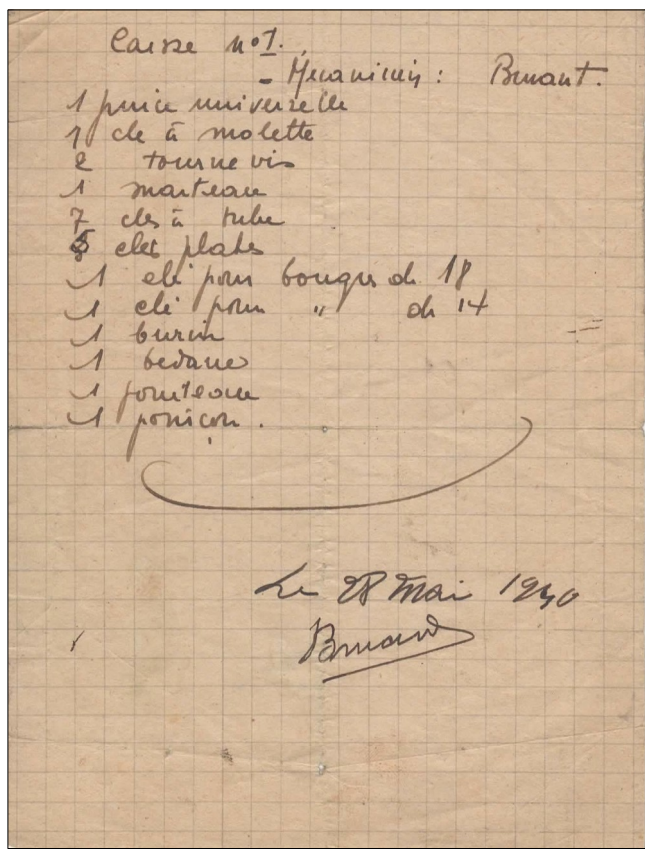 Caisse n° 1.
- Mécanicien : Bruant.
1 pince universelle
1 cle à molette
2 tourne vis
1 marteau
7 cles à tube
5 clés plates
1 clé pour bougies de 18
1 clé pour " de 14
1 burin
1 bedane
1 pointeau
1 poniçon.
Le 28 Mai 1940
Bruant